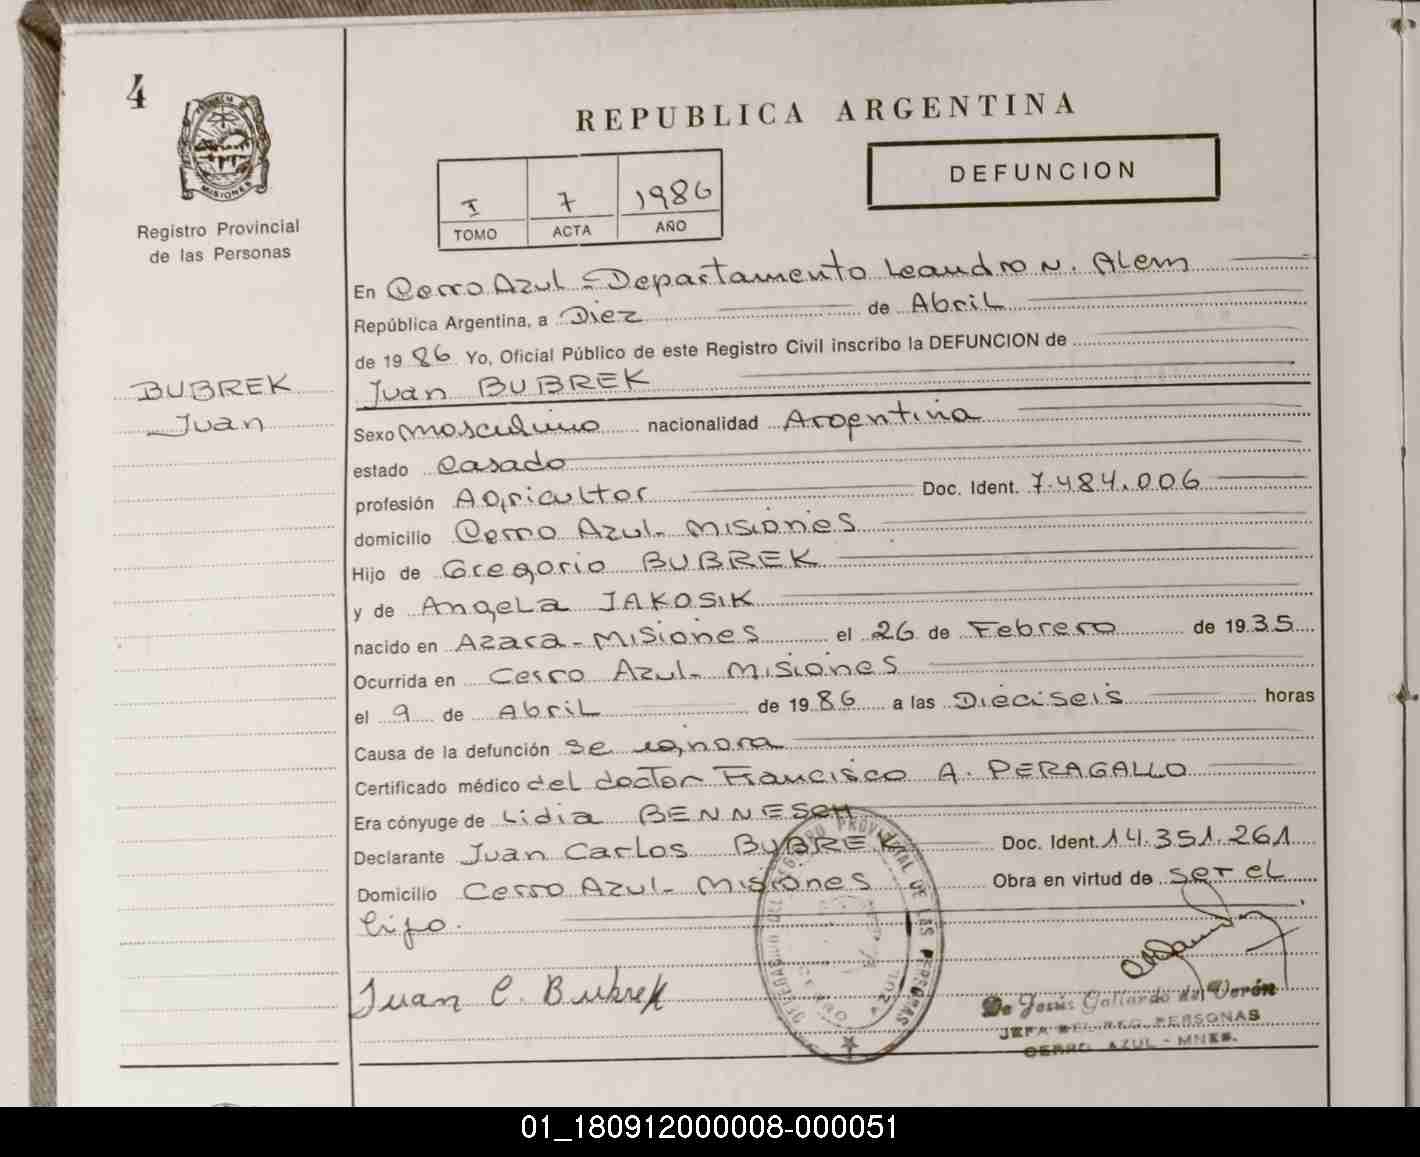 4
PROVINCIA DE
MISIONES
Registro Provincial
de las Personas
BUBREK
Juan
REPUBLICA ARGENTINA
I 7 1986
TOMO ACTA AÑO
DEFUNCION
En Cerro Azul - Departamento Leandro N. Alem
República Argentina, a Diez de Abril
de 1986 Yo, Oficial Público de este Registro Civil inscribo la DEFUNCION de
Juan BUBREK
Sexo masculino nacionalidad Argentina
estado Casado
profesión Agricultor Doc. Ident. 7.484.006
domicilio Cerro Azul - Misiones
Hijo de Gregorio BUBREK
y de Angela JAKOSIK
nacido en Azara - Misiones el 26 de Febrero de 1935
Ocurrida en Cerro Azul - Misiones
el 9 de Abril de 1986 a las Dieciseis horas
Causa de la defunción se ignora
Certificado médico del doctor Francisco A. PERAGALLO
Era cónyuge de Lidia BENNESCH
Declarante Juan Carlos BUBREK Doc. Ident. 14.351.261
Domicilio Cerro Azul - Misiones Obra en virtud de ser el
hijo.
Juan C. Bubrek
PROVINCIAL DE LAS PERSONAS
CERRO AZUL
De Jesús Gallardo de Verón
JEFA DEL REG. PERSONAS
CERRO AZUL - MNES.
01_180912000008-000051